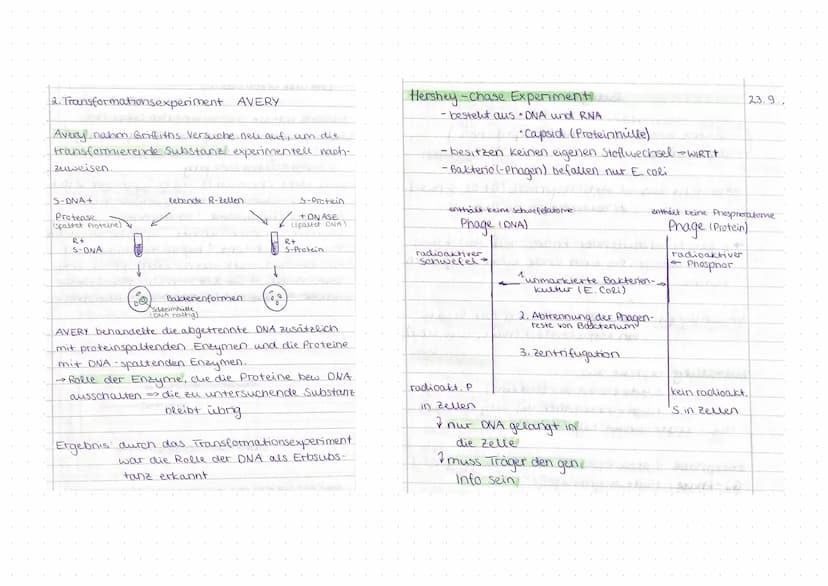 2. Transformationsexperiment AVERY
Avery nahm Griffiths Versuche neu auf, um die
transformierende Substanz experimentell nach-
zuweisen.
S-DNA+ lebende R-Zellen S-Protein
Protease + DNASE
(spaltet Proteine) (spaltet DNA)
R+ R+
S-DNA S-Protein
Bakterienformen
Schleimhülle
(DNA haltig)
AVERY behandelte die abgetrennte DNA zusätzlich
mit proteinspaltenden Enzymen und die Proteine
mit DNA-spaltenden Enzymen.
→ Rolle der Enzyme, die die Proteine bzw DNA
ausschalten => die zu untersuchende Substanz
bleibt übrig
Ergebnis: durch das Transformationsexperiment
war die Rolle der DNA als Erbsubs-
tanz erkannt
Hershey-Chase Experiment 23.9.
- besteht aus • DNA und RNA
• Capsid (Proteinhülle)
- besitzen keinen eigenen Stoffwechsel → WIRT
- Bakterio(-Phagen) befallen nur E. coli
enthält keine Schwefelatome enthält keine Phosphoratome
Phage (DNA) Phage (Protein)
radioaktiver radioaktiver
Schwefel → ← Phosphor
1. unmarkierte Bakterien-
kultur (E. Coli)
2. Abtrennung der Phagen-
reste von Bakterium
3. Zentrifugation
radioakt. P kein radioakt.
in Zellen S. in Zellen
↓ nur DNA gelangt in
die Zelle
↓ muss Träger den gen.
Info sein